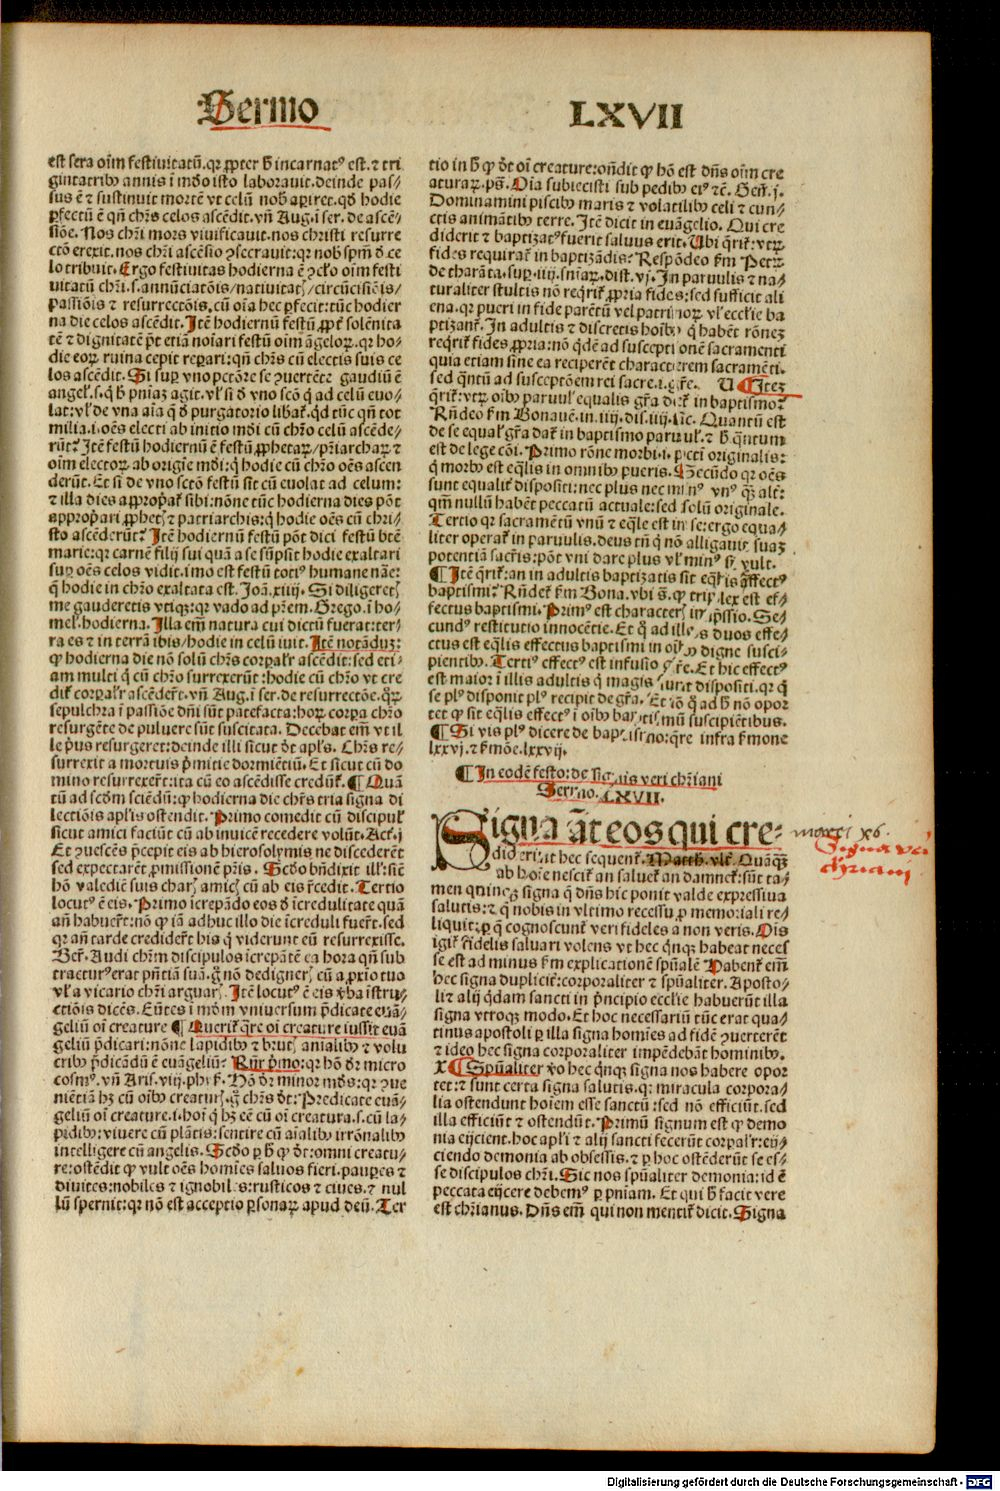 Sermo
LXVII
est fera oīm festiuitatū.qꝛ ꝓpter h̄ incarnatꝰ est.ꞇ tri
gintatribꝰ annis ī mūdo isto laborauit.deinde pas⸗
sus ē ꞇ sustinuit mortē vt celū nob̄ aꝑiret.qd̄ hodie
ꝑfectū ē qn̄ chr̄s celos ascēdit.vn̄ Aug.ī ser.de ascē⸗
siōe.Nos chr̄i mors viuificauit.nos christi resurre
ctō erexit.nos chr̄i ascēsio ꝯsecrauit:qꝛ nob̄ spm̄ d̄ ce
lo tribuit.Ergo festiuitas hodierna ē ꝯclꝰo oīm festi
uitatū chr̄i.s.annūciatōis/natiuitatꝭ/circūcisiōis/
passiōis ꞇ resurrectōis,cū oīa hec ꝑfecit:tūc hodier
na die celos ascēdit.Itē hodiernū festū ꝓpt̄ solēnita
tē ꞇ dignitatē pt̄ etiā noīari festū oīm āgeloꝝ.qꝛ ho⸗
die eoꝝ ruina cepit reꝑari:qn̄ chr̄s cū electis suis ce
los ascēdit.Si suꝑ vno pctōre se ꝯuertēte gaudiū ē
angel̄.s.q̄ h̄ pn̄iaꝫ agit.vl̓ si d̄ vno scō q̄ ad celū euo⸗
lat:vl̓ de vna aīa q̄ d̄ purgatorio libat̄.qd̓ tūc qn̄ tot
milia.i.oēs electi ab initio mūdi cū chr̄o celū ascēde⸗
rūt? Itē festū hodiernū ē festū ꝓphetaꝝ/pr̄iarchaꝝ ꞇ
oīm electoꝝ.ab origīe mūdi:q̄ hodie cū chr̄o oēs ascen
derūt.Et si de vno sctō festū sit cū euolat ad celum:
ꞇ illa dies appropat̄ sibi:nōne tūc hodierna dies pōt
appropari ꝓphetꝭ ꞇ patriarchis:q̄ hodie oēs cū chri⸗
sto ascēderūt? Itē hodiernū festū pōt dici festū btē
marie:qꝛ carnē filij sui quā a se sūpsit hodie exaltari
suꝑ oēs celos vidit.imo est festū totiꝰ humane nāe:
q̄ hodie in chr̄o exaltata est.Joā.xiiij.Si diligeretꝭ
me gauderetis vtiqꝫ:qꝛ vado ad pr̄em.Grego.ī ho⸗
mel.hodierna.Illa em̄ natura cui dictū fuerat:ter⸗
ra es ꞇ in terrā ibis/hodie in celū iuit.Itē notādū:
ꝙ hodierna die nō solū chr̄s corpal̓r ascēdit:sed eti⸗
am multi q̄ cū chr̄o surrexerūt:hodie cū chr̄o vt cre
dit̄ corpal̓r ascēdert̄.vn̄ Aug.ī ser.de resurrectōe.Qꝝ
sepulchra ī passiōe dn̄i sūt patefacta:hoꝝ corpa chr̄o
resurgēte de puluere sūt suscitata.Decebat em̄ vt il
le pꝰus resurgeret:deinde illi sicut d̄t apl̓s.Chr̄s re⸗
surrexit a mortuis pͥmitie dormiētiū.Et sicut cū do
mino resurrexert̄:ita cū eo ascēdisse credūt̄.¶Quā
tū ad scd̄m sciēdū:ꝙ hodierna die chr̄s tria signa di
lectiōis apl̓is ostendit.Primo comedit cū discipul̓
sicut amici faciūt cū ab inuicē recedere volūt.Act̄.j
Et ꝯuescēs p̄cepit eis ab hierosolymis ne discederēt
sed expectarēt ꝓmissionē pr̄is.Scd̄o bn̄dixit ill̓:siē
hō valediē suis charꝭ amicꝭ cū ab eis recedit.Tertio
locutꝰ ē eis.Primo īcrepādo eos d̄ īcredulitate quā
an̄ habuert̄:nō ꝙ īā adhuc illo die īcreduli fuert̄.sed
qꝛ an̄ tarde credidert̄ his q̄ viderunt eū resurrexisse.
Ber̄.Audi chr̄m discipulos īcrepātē ea hora qn̄ sub
tracturꝰerat pn̄tiā suā.ḡ nō dedignerꝭ cū a pͥrio tuo
vl̓ a vicario chr̄i arguarꝭ.Itē locutꝰ ē eis ꝟba īstru⸗
ctiōis dicēs.Eūtes ī mūdū vniuersum p̄dicate euā⸗
geliū oī creature ¶ Querit̄ q̄re oī creature iussit euā
geliū p̄dicari:nōne lapidibꝰ ꞇ brutꝭ aīalibꝰ ꞇ volu
cribꝰ p̄dicādū ē euāgeliū? Rn̄r pͥmo:qꝛ hō d̓r micro
cosmꝰ.vn̄ Aris.viij.phi.k̄.Hō d̓r minor mūdꝰ:qꝛ ꝯue
niētiā hꝫ cū oībꝰ creaturꝭ.ḡ chr̄s d̄t:Predicate euā⸗
geliū oī creature.i.hoī q̄ hꝫ eē cū oī creatura.s.cū la⸗
pidibꝰ:viuere cū plātis:sentire cū aīalibꝰ irrōnalibꝰ
intelligere cū angelis.Scd̄o ꝑ h̄ ꝙ d̄t:omni creatu⸗
re:ostēdit ꝙ vult oēs homīes saluos fieri.pauꝑes ꞇ
diuites:nobiles ꞇ ignobiles:rusticos ꞇ ciues.ꞇ nul
lū spernit:qꝛ nō est acceptio ꝑsonaꝝ apud deū.Ter
tio in h̄ ꝙ d̄t oī creature:on̄dit ꝙ hō est dn̄s oīm cre
aturaꝝ.ps̄.Oīa subiecisti sub pedibꝰ eiꝰ ꞇc̄.Gen̄.j.
Dominamini piscibꝰ maris ꞇ volatilibꝰ celi ꞇ cun⸗
ctis animātibꝰ terre.Itē dicit in euāgelio.Qui cre
diderit ꞇ baptizatꝰ fuerit saluus erit.Ubi q̄rit̄:vtꝝ
fides requirat̄ in baptizādis? Respōdeo ẜm Petꝝ
de tharāta.suꝑ.iiij.sn̄iaꝝ.dist.vj.In paruulis ꞇ na⸗
turaliter stultis nō reqͥrit̄ ꝓpria fides:sed sufficit ali
ena.qꝛ pueri in fide parētū vel patrinoꝝ vl̓ eccl̓ie ba
ptizant̄.In adultis ꞇ discretis hoībꝰ q̄ habēt rōneꝫ
reqͥrit̄ fides ꝓpria:nō q̄dē ad susceptionē sacramenti
quia etiam sine ea reciperēt characterem sacramēti.
sed q̄ntū ad susceptōem rei sacre.i.gr̄e. U ¶Iteꝫ
q̄rit̄:vtꝝ oībꝰ paruul̓ equalis gr̄a det̄ in baptismo?
Rn̄deo ẜm Bonauē.in.iiij.dis.iiij.sic.Quantū est
de se equal̓ gr̄a dat̄ in baptismo paruul̓.ꞇ h̄ q̄ntum
est de lege cōi.Primo rōne morbi.i.pctī originalis:
q̄ morbꝰ est eq̄lis in omnibꝰ pueris.Secūdo qꝛ oēs
sunt equalit̄ dispositi:nec plus nec minꝰ vnꝰ qꝫ alt̄:
qm̄ nullū habēt peccatū actuale:sed solū originale.
Tertio qꝛ sacramētū vnū ꞇ eq̄le est in se:ergo equa⸗
liter operat̄ in paruulis.deus tn̄ q̄ nō alligauit suaꝫ
potentiā sacr̄is:pōt vni dare plus vl̓ minꝰ si vult.
¶Itē q̄rit̄:an in adultis baptizatis sit eq̄lis effectꝰ
baptismi? Rn̄det̄ ẜm Bona.vbi s̄.ꝙ triplex est ef⸗
fectus baptismi.Primꝰ est characterꝭ īpssio.Se⸗
cundꝰ restitutio innocētie.Et q̄ ad illos duos effe⸗
ctus est eq̄lis effectus baptismi in oībꝰ digne susci⸗
pientibꝰ.Tertiꝰ effectꝰ est infusio gr̄e.Et hic effectꝰ
est maior ī illis adultis q̄ magis sunt dispositi.qꝛ q̄
se plꝰ disponit plꝰ recipit de gr̄a.Et iō q̄ ad h̄ nō opor
tet ꝙ sit eq̄lis effectꝰ ī oībꝰ baptismū suscipiētibus.
¶Si vis plꝰ dicere de baptismo:q̄re infra ẜmone
lxxvj.ꞇ ẜmōe.lxxvij.
¶In eodē festo:de signis veri chr̄iani
Sermo. LXVII.
Signa āt eos qui cre⸗
diderūt hec sequent̄.Matth.vlt̄.Quāqꝫ
ab hoīe nescit̄ an saluet̄ an damnet̄:sūt ta⸗
men quinqꝫ signa q̄ dn̄s hic ponit valde expressiua
salutis:ꞇ q̄ nobis in vltimo recessu ꝑ memoriali re⸗
liquit:ꝑ q̄ cognoscunt̄ veri fideles a non veris.Oīs
igit̄ fidelis saluari volens vt hec qͥnqꝫ habeat neces
se est ad minus ẜm explicationē spūalē Habent̄ em̄
hec signa duplicit̄:corporaliter ꞇ spūaliter.Aposto⸗
li ꞇ alij qͥdam sancti in pͥncipio eccl̓ie habuerūt illa
signa vtroqꝫ modo.Et hoc necessariū tūc erat qua⸗
tinus apostoli ꝑ illa signa homīes ad fidē ꝯuerterēt
ꞇ ideo hec signa corporaliter impēdebāt hominibꝰ.
X ¶Spūaliter ꝟo hec qͥnqꝫ signa nos habere opor
tet:ꞇ sunt certa signa salutis.qꝛ miracula corpora⸗
lia ostendunt hoīem esse sanctū:sed nō efficiūt.sed
illa efficiūt ꞇ ostendūt.Primū signum est ꝙ demo
nia eijcient.hoc apl̓i ꞇ alij sancti fecerūt corpal̓r:eij⸗
ciendo demonia ab obsessis.ꞇ ꝑ hoc ostēderūt se es⸗
se discipulos chr̄i.Sic nos spūaliter demonia:id ē
peccata eijcere debemꝰ ꝑ pniam.Et qui h̄ facit vere
est chr̄ianus.Dn̄s em̄ qui non mentit̄ dicit.Signa
marci x6.
Signa ve⸗
chriani
Digitalisierung gefördert durch die Deutsche Forschungsgemeinschaft - DFG